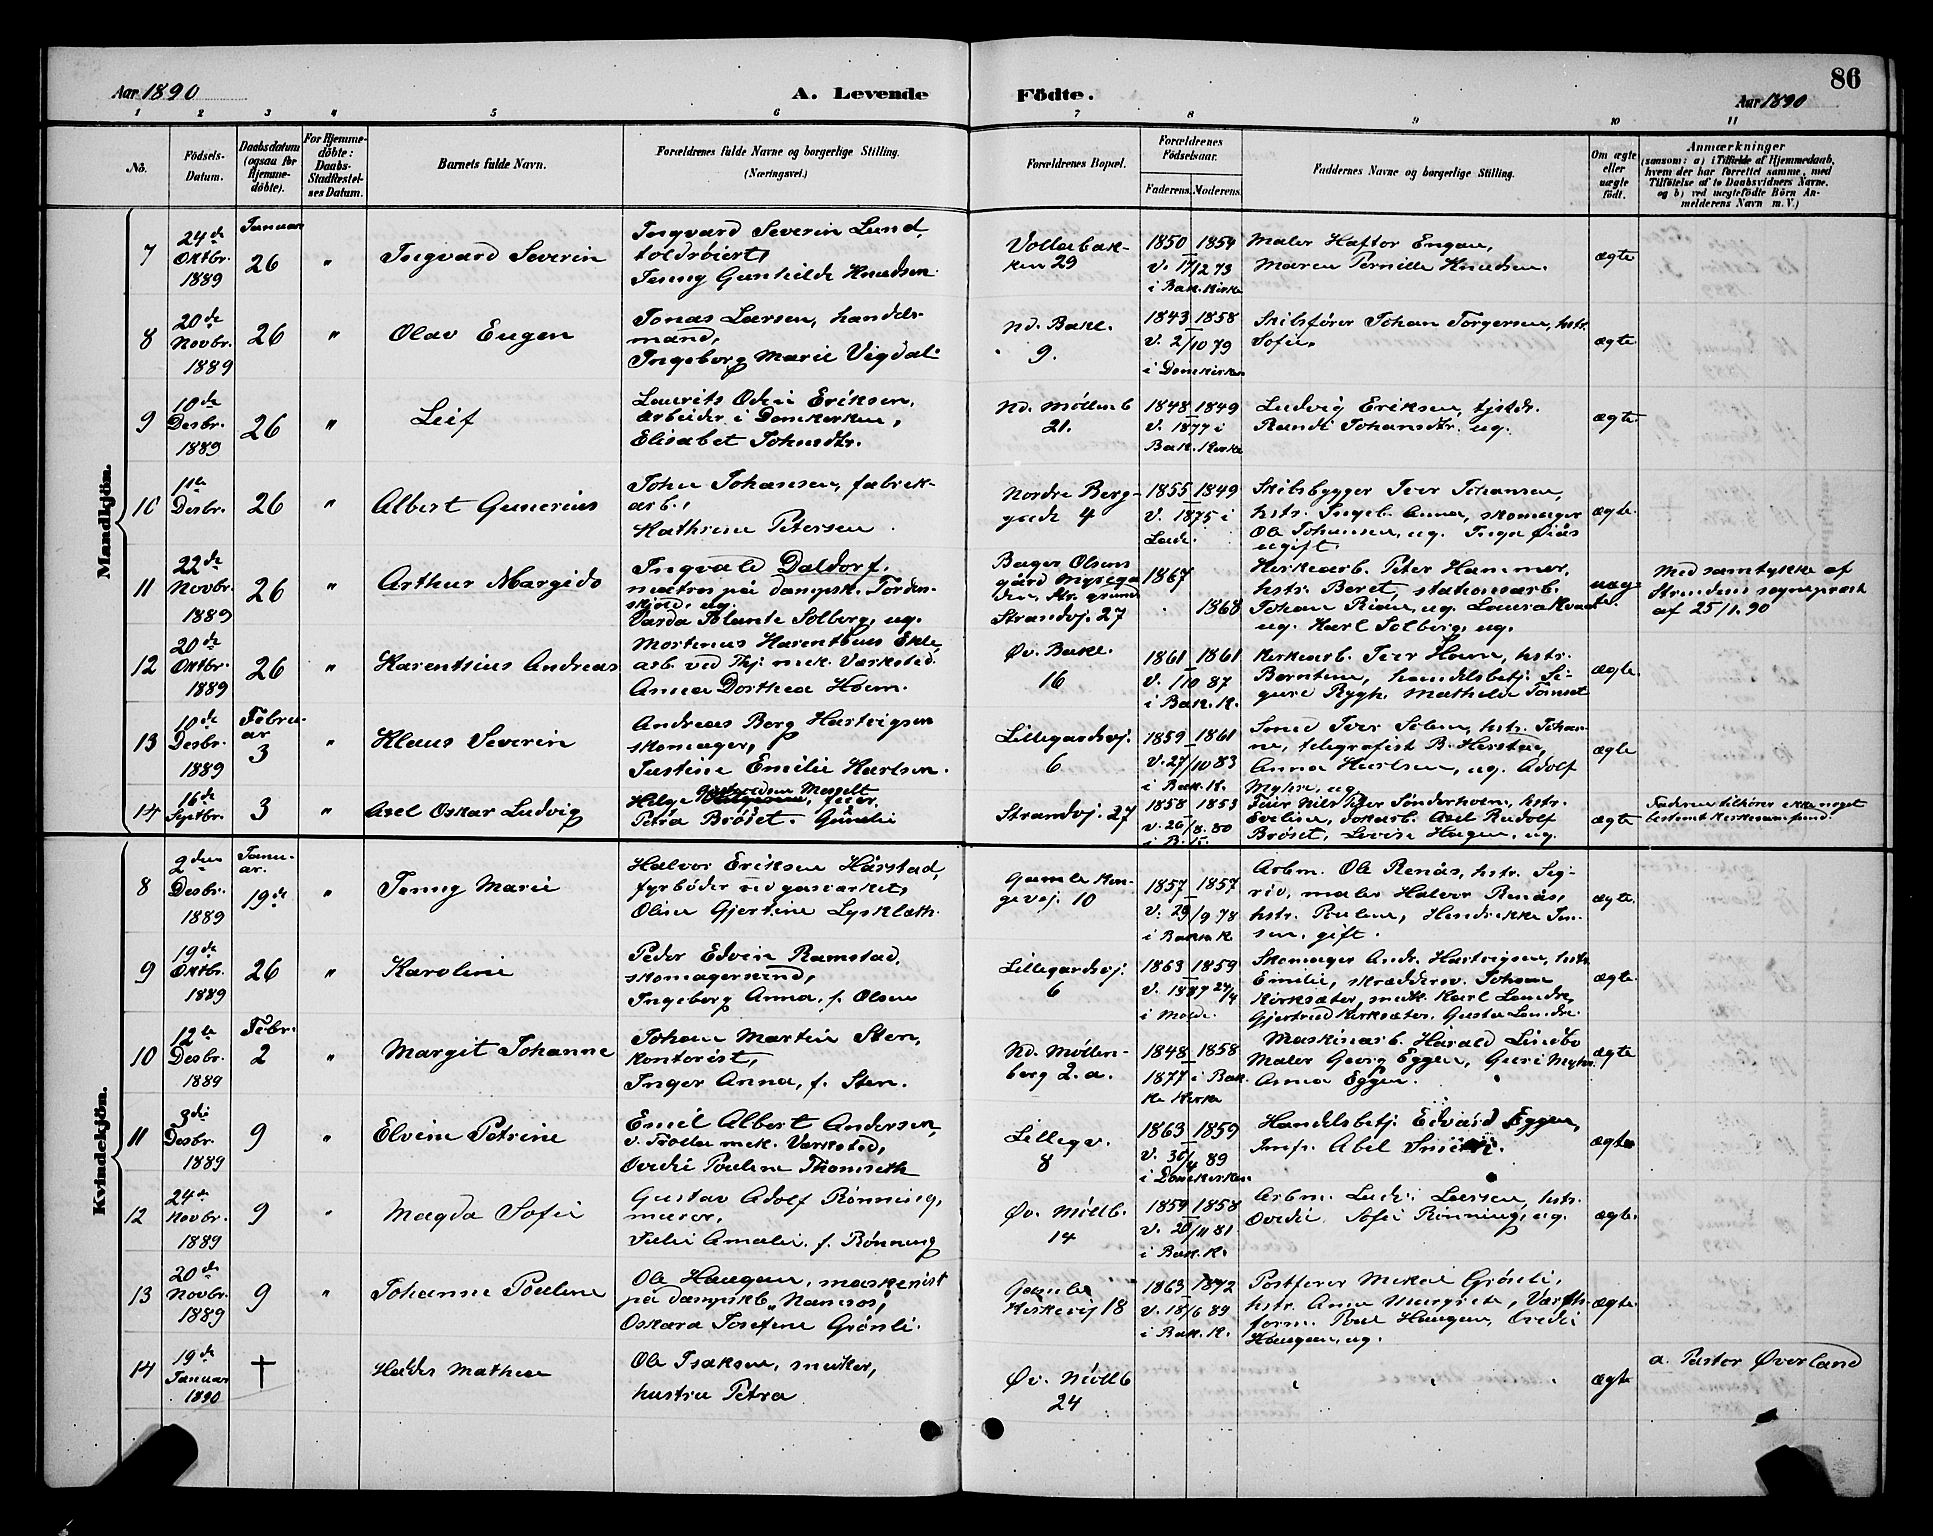 86
Aar 1890
A. Levende
Födte.
Aar 1890
1 2 3 4 5 6 7 8 9 10 11
No.
Födsels-
Datum.
Daabsdatum
(ogsaa for
Hjemme-
döbte).
For Hjemme-
döbte:
Daabs-
Stadfæstel-
ses Datum.
Barnets fulde Navn.
Forældrenes fulde Navne og borgerlige Stilling.
(Næringsvei.)
Forældrenes Bopæl.
Forældrenes
Födselsaar.
Faderens. Moderens.
Faddernes Navne og borgerlige Stilling.
Om ægte
eller
uægte
födt.
Anmærkninger
(saasom: a) i Tilfælde af Hjemmedaab,
hvem der har forrettet samme, med
Tilföielse af to Daabsvidners Navne.
og b) ved uægtefödte Börn An-
melderens Navn m. V.)
Mandkjön.
7
24de
Oktbr.
1889
Januar
26
"
Ingvard Severin
Ingvard Severin Lund,
toldrøiert,
Jenny Gunhilde Knudsen
Vollabak-
ken 29
1850 1854
V. 17/12 73
i Bak. Kirke
Maler Haftor Engan,
Maren Pernille Knudsen.
ægte
8
20de
Novbr.
1889
26
"
Olav Eugen
Jonas Larsen, handels-
mand,
Ingeborg Marie Vigdal.
Nd. Bakl.
9.
1843 1858
V. 2/10 79
i Domkirken
Skibsfører Johan Torgersen, hstr.
Sofie.
ægte
9
10de
Desbr.
1889
26
"
Leif
Laurits Odin Eriksen,
arbeider i Domkirken,
Elisabet Johnsdtr.
Nd. Møllenb
21.
1848 1849
V. 1877 i
Bak. Kirke
Ludvig Eriksen, tjstdr.
Randi Johansdtr. ug.
ægte
10
11te
Desbr.
26
"
Albert Gunerius
John Johansen, fabrik-
arb.,
Kathrine Petersen
Nordre Berg-
gade 4
1855 1849
V. 1875 i
Lade.
Skibsbygger Iver Johansen,
hstr. Ingeb. Anna, skomager
Ole Johansen, ug. Inga Øiås
ugift.
ægte.
11
22de
Novbr.
1889
26
"
Arthur Margido
Ingvald Daldorf,
matros på dampsk. Torden-
skjold, ug.
Varda Iolante Solberg, ug.
Bager Olsens
gård
Strandvj. 27
1867
1868
Kirkearb. Peter Hammer,
hstr. Beret, stationsarb.
Johan Rian, ug. Laura
ug. Karl Solberg, ug.
uæg-
te.
Med samtykke af
Strindens sogneprest
af 25/1. 90
12
20de
Oktbr.
1889
26
"
Karentsius Andreas
Mortinus Karentsius Ekle,
arb. ved Thj. mek. Værksted.
Anna Dorthea Hoem.
Øv. Bakl.
16
1861 1861
V. 1/10 87
i Bak. K.
Kirkearb. Iver Hoem, hstr.
Berntine, handelsbetj. Si-
gurd Rygh. Mathilde Tømset
ægte.
13
10de
Desbr.
1889
Febru-
ar
3
"
Klaus Severin
Andreas Berg Hartvigsen
skomager,
Justine Emilie Karlsen.
Lillegardsvj.
6
1859 1861
V. 27/10 83
i Bak. K.
Smed Iver Solem, hstr. Johan-
ne, telegrafist B. Herstad,
Anna Karlsen, ug. Adolf
Myhre, ug.
ægte
14
16de
Septbr.
3
"
Axel Oskar Ludvig
Helge
feier,
Petra Brøset. Gunelie
Strandvj. 27
1858 1853
V. 26/8. 80
i B. K.
Feier Nils Peter Sønderholm, hstr.
Eveline, dokarb. Axel Rudolf
Brøset, Lovise Hagen, ug.
ægte
Faderen tilhører ikke noget
bestemt kirkesamfund.
Kvindekjön.
8
2den
Desbr.
1889
Janu-
ar.
19de
"
Jenny Marie
Halvor Eriksen Hårstad,
fyrbøder ved gasværket,
Oline Gjertine Lysklæth.
Gamle Kon-
gevej. 10
1857 1857
V. 29/9 78
i Bak. K
Arbm. Ole Renås, hstr. Sig-
rid, maler Halvor Renås,
hstr. Pauline, Hendrikke Jen-
sen, gift.
ægte.
9
19de
Oktbr.
1889
26
"
Karoline
Peder Edvin Ramstad,
skomagersvend,
Ingeborg Anna, f. Olsen
Lillegardsvj.
6
1863 1859
V. 1887 24/4
i Molde.
Skomager Andr. Hartvigsen, hstr.
Emilie, skræddersv. Johan
Kirksæter, snedk. Karl Lande,
Gjertrud Kirksæter, Gusta Lande.
ægte.
10
12te
Desbr.
1889
Febr.
2
"
Margit Johanne
Johan Martin Sten,
kontorist,
Inger Anna, f. Sten.
Nd. Møllen-
berg 2. a.
1848 1858
1877 i Bak-
ke Kirke
Maskinarb. Harald Lindbo
Maler Georg Eggen, Guri Myhre
Anna Eggen.
ægte
11
3die
Desbr.
1889
9
"
Elvine Petrine
Emil Albert Andersen,
v. Trolla mek. Værksted,
Ovedie Pauline Thomseth
Lillegv.
8
1863 1859
V. 30/4 89
i Domkirken
Handelsbetj. Edvard Eggen,
Jmfr. Abel
ægte
12
24de
Novbr.
1889
9
"
Magda Sofie
Gustav Adolf Rønning,
murer,
Julie Amalie, f. Rønning
Øv. Møllb.
14
1859 1858
V. 20/11 81
i Bak. K.
Arbm. Ludv. Larsen, hstr.
Ovedie. Sofie Rønning, ug.
ægte.
13
20de
Novbr.
1889
9
"
Johanne Pauline
Ole Haugan, maskinist
på dampskb. „Namsos",
Oskara Josefine Grønli.
Gamle
Kirkevej 18
1863 1872
V. 18/6 89
i Bak. K.
Postfører Mikal Grønli,
hstr. Anna Margrete, Værfts-
form. Paul Haugan, Ovedie
Haugan, ug.
ægte.
14
19de
Januar
1890
†
Heddes Mathea
Ole Isaksen, snekker,
hustru Petra
Øv. Møllb
24
ægte.
a. Pastor Øverland